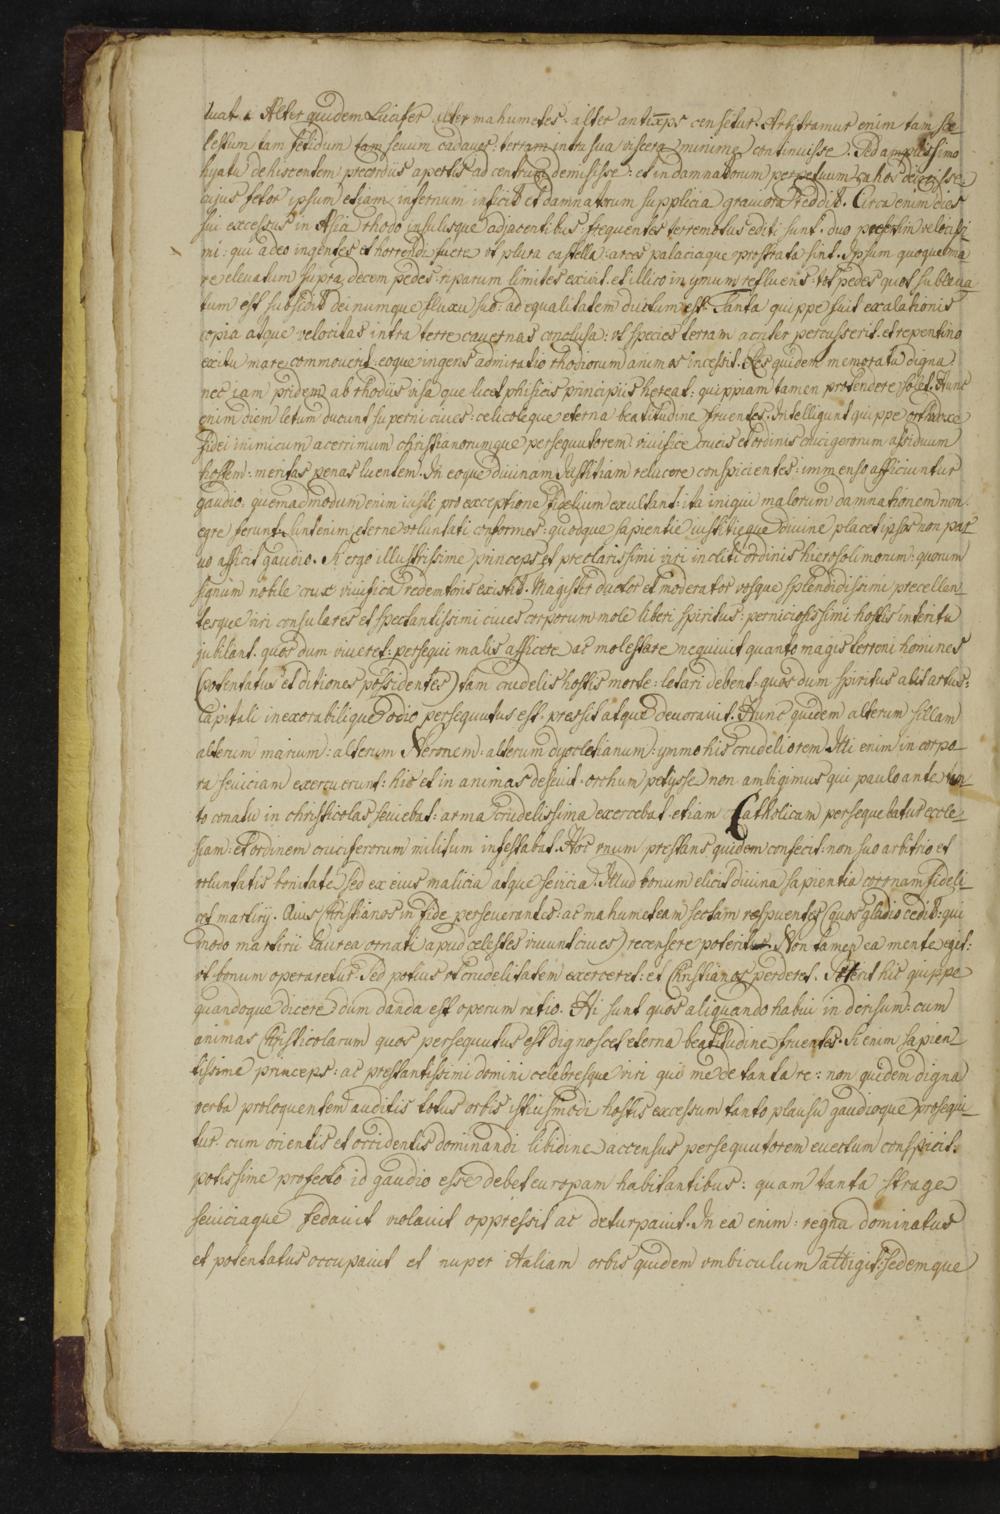 luat. Alter quidem Lucifer alter mahumetes. alter antixp̄s censetur. Arbitramur enim tam sce_
lestum tam fetidum tam seuum cadauer: terram intra sua viscera minime continuisse. Sed amplissimo
hyatu dehiscentem precordiis apertis ad centrum demisisse: et in damnatorum perpetuum cahos deiecisse
cujus fetor ipsum etiam infernum inficit et damnatorum supplicia grauiora reddit. Circa enim dies
sui excessus in Asia rhodo insulisque adjacentibus: frequentes terremotus editi sunt. duo presertim velocissi
mi: qui adeo ingentes et horrendi fuere ut plura castella: arces palaciaque prostrata sint. Ipsum quoque ma
re eleuatum supra decem pedes riparum limites exiuit. et illico in ymum refluens: tot pedes quot subleua
tum est subsidit deinumque fluxu suo: ad equalitatem ductum est. Tanta quippe fuit exalationis
copia atque velocitas intra terre cauernas conclusa: ut species terram acriter percusserit. et repentino
exitu mare commouerit eoque ingens admiratio rhodiorum animos incessit. Res quidem memoratu digna
nec iam pridem ab rhodiis visa que licet phisicis principiis hereat: quippiam tamen protendere solet. Hunc
enim diem letum ducunt superni ciues: celicoleque eterna beatitudine fruentes. Intelligunt quippe orthodoxe
fidei inimicum acerrimum christianorumque persequutorem viuifice crucis et ordinis crucigerorum assiduum
hostem: meritas penas luentem. In eoque diuinam Iustitiam relucere conspicientes: immenso afficiuntur
gaudio. quemadmodum enim iusti pro exceptione fidelium exultant: ita iniqui malorum damnationem non
egre ferunt. Sunt enim eterne voluntati conformes: quodque sapientie iustitieque diuine placet ipsos non par
uo afficit gaudio. Si ergo illustrissime princeps et preclarissimi viri incliti ordinis hierosolimorum: quorum
signum nobile crux viuifica redemtoris existit. Magister ductor et moderator vosque splendidissimi precellen_
tesque viri consulares et spectantissimi ciues corporum mole liberi spiritus: perniciosissimi hostis interitu
jubilant. quos dum viueret: persequi malis afficere ac molestare nequiuit quanto magis terreni homines
(potentatus et ditiones possidentes) tam crudelis hostis morte: letari debent. quos dum spiritus aluit artus:
capitali inexorabilique odio persequutus est. pressit atque deuorauit. Hunc quidem alterum sillam
alterum marium: alterum Neronem. alterum dyocletianum: ymmo his crudeliorem Illi enim in corpo_
ra seuiciam exercuerunt: hic et in animas deseuit. orchum petysse non ambigimus qui paulo ante tan
to conatu in christicolas seuiebat: arma crudelissima exercebat. etiam Catholicam persequebatur eccle_
siam: et ordinem cruciferorum militum infestabat. Hoc vnum prestans quidem confecit: non suo arbitrio et
voluntatis bonitate sed ex eius malicia atque seuicia. Illud bonum elicit diuina sapientia coronam fideli_
cet martirij. Quis Christianos in fide perseuerantes: ac mahumeteam sectam respuentes (quos gladio cedit: qui
modo martirii laurea ornati apud celestes viuunt ciues) recensere poterit. Non tamen ea mente egit:
ut bonum operaretur. Sed potius ut crudelitatem exerceret: et Christianos perderet. Poterit hic quippe
quandoque dicere dum danda est operum ratio. Hi sunt quos aliquando habui in derisum: cum
animas Christicolarum quos persequutus est dignoscet eterna beatitudine fruentes. Si enim sapien_
tissime princeps: ac prestantissimi domini celebresque viri qui me de tanta re: non quidem digna
verba proloquentem auditis totus orbis istiusmodi hostis excessum tanto plausu gaudioque prosequi_
tur. cum orientis et occidentis dominandi libidine accensus persequutorem euectum conspicit.
potissime profecto id gaudio esse debet europam habitantibus: quam tanta strage
seuiciaque fedauit violauit oppressit ac deturpauit. In ea enim: regna dominatus
et potentatus occupauit et nuper italiam orbis quidem vmbiculum attigit: sedemque